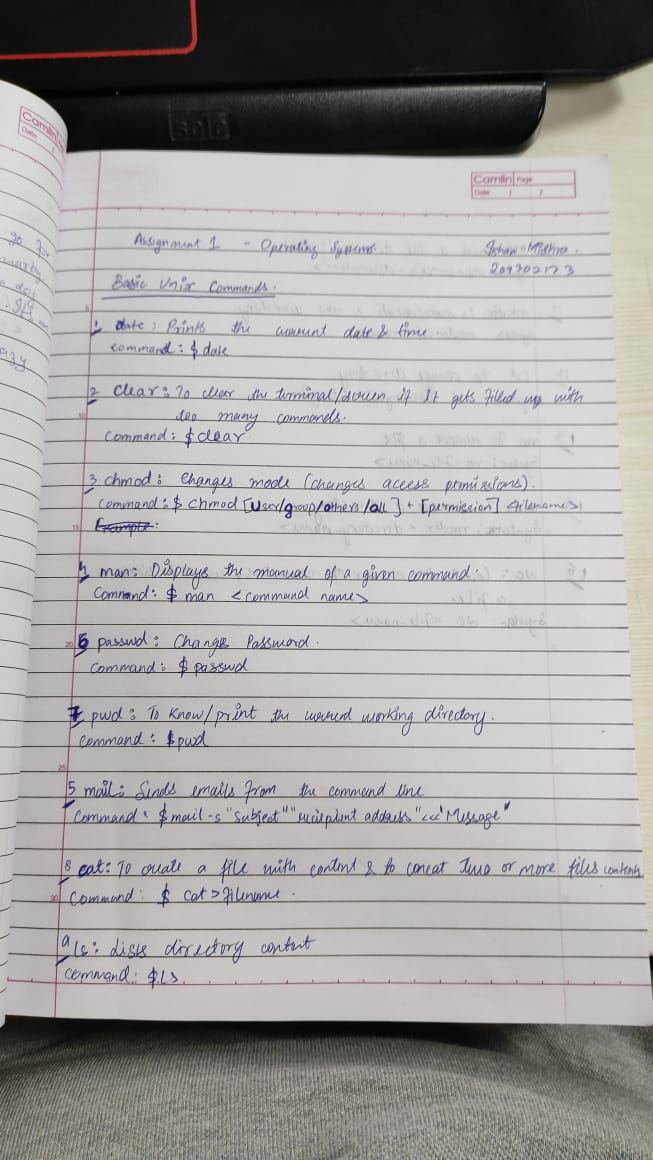 solo
Camlin
Date
Camlin Page
Date / /
go for
Assignment 1 - Operating Systems. Ishan Mishra.
209302173
Basic Unix Commands.
1 date: Prints the current date & time
command: $ date
2 Clear: To clear the terminal/screen if it gets filled up with
too many commands.
Command: $ clear
3 chmod: Changes mode (changes access permissions).
Command: $ chmod [user/group/others/all] + [permission] <filename>
Example:
4 man: Displays the manual of a given command.
Command: $ man <command name>
6 passwd: Change Password.
Command: $ passwd
7 pwd: To know/print the current working directory.
Command: $ pwd
5 mail: Sends emails from the command line
Command: $ mail -s "Subject" "recipient address" <<< "Message"
8 cat: To create a file with content & to concat two or more files contents.
Command: $ cat > filename.
9 ls: Lists directory content
Command: $ LS